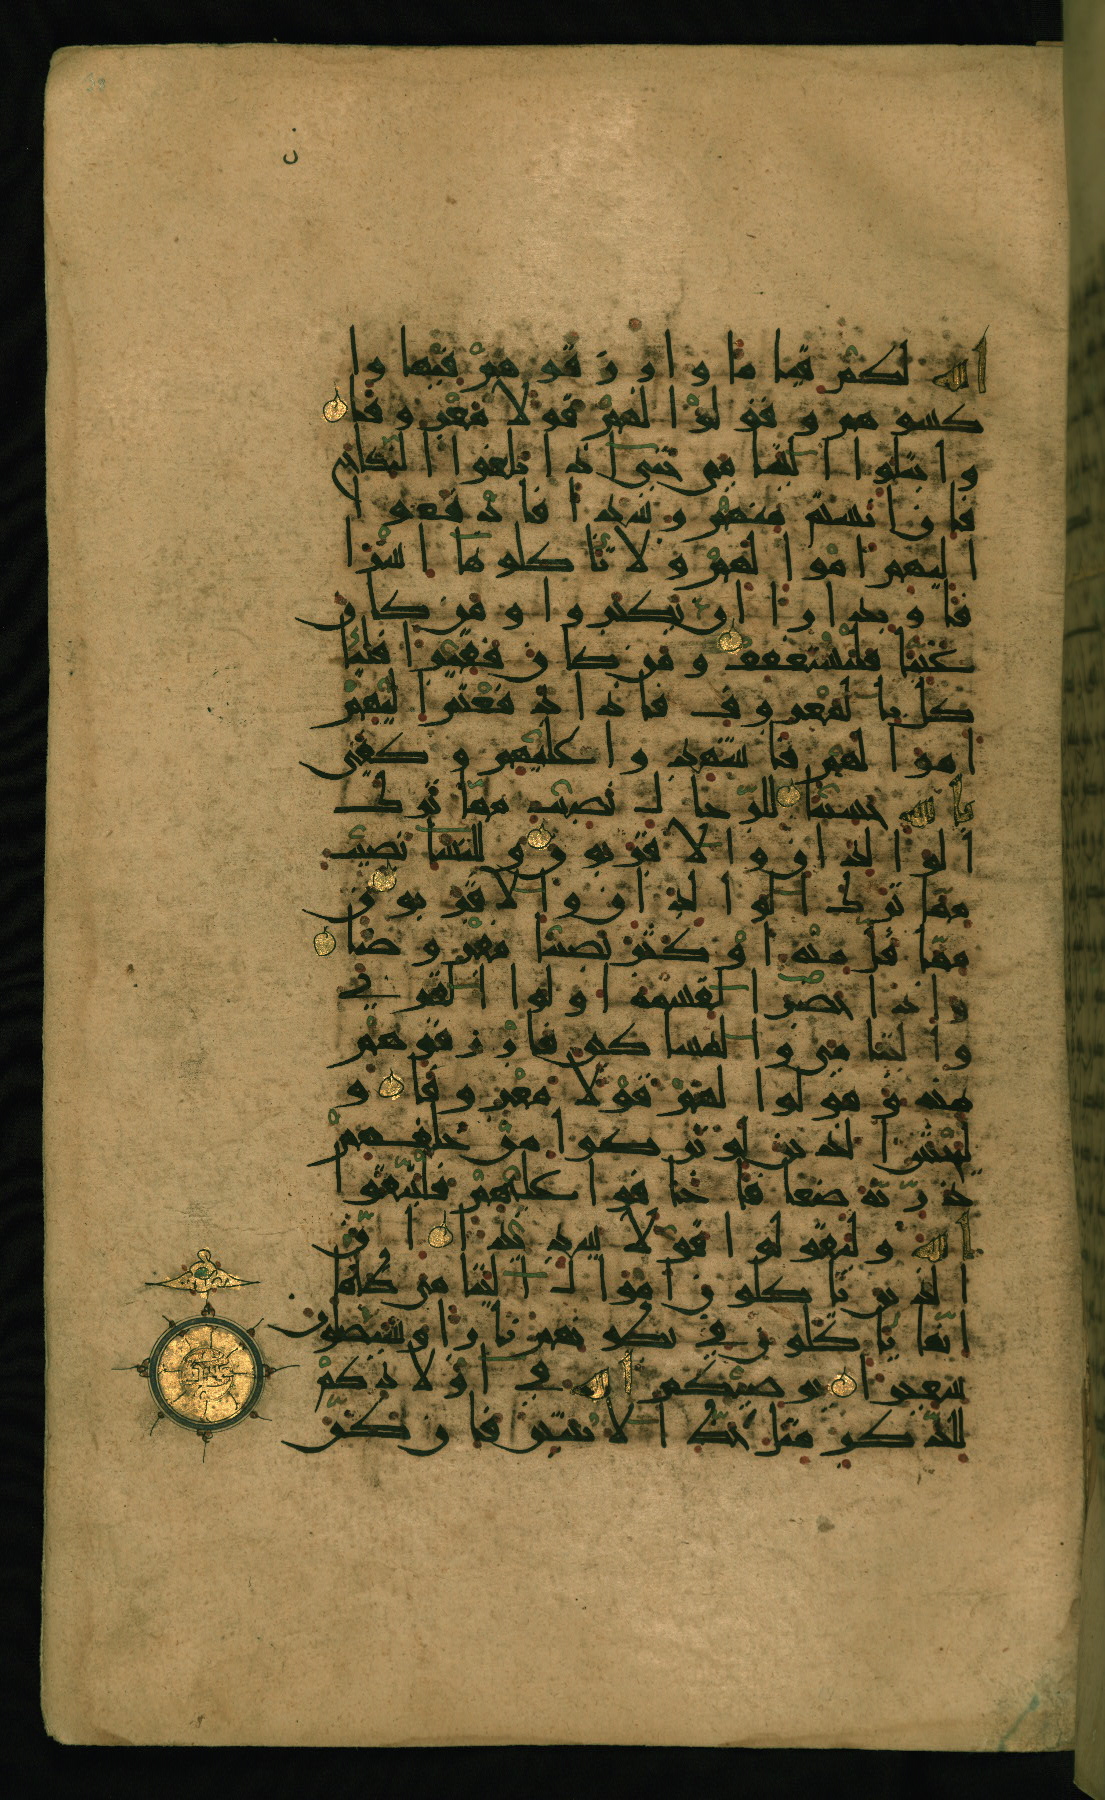 الله لكم قيما وارزقوهم فيها وا
كسوهم وقولوا لهم قولا معروفا
وابتلوا اليتمى حتى اذا بلغوا النكاح
فان انستم منهم رشدا فادفعوا
اليهم اموالهم ولا تاكلوها اسرا
فا وبدارا ان يكبروا ومن كان
غنيا فليستعفف ومن كان فقيرا فليا
كل بالمعروف فاذا دفعتم اليهم
اموالهم فاشهدوا عليهم وكفى
بالله حسيبا للرجال نصيب مما ترك
الوالدان والاقربون وللنسا نصيب
مما ترك الوالدان والاقربون
مما قل منه او كثر نصيبا مفروضا
واذا حضر القسمة اولوا القربى
واليتمى والمسكين فارزقوهم
منه وقولوا لهم قولا معروفا و
ليخش الذين لو تركوا من خلفهم
ذرية ضعفا خافوا عليهم فليتقوا
الله وليقولوا قولا سديدا ان
الذين ياكلون اموال اليتمى ظلما
انما ياكلون في بطونهم نارا وسيصلون
سعيرا يوصيكم الله في اولادكم
للذكر مثل حظ الانثيين فان كن